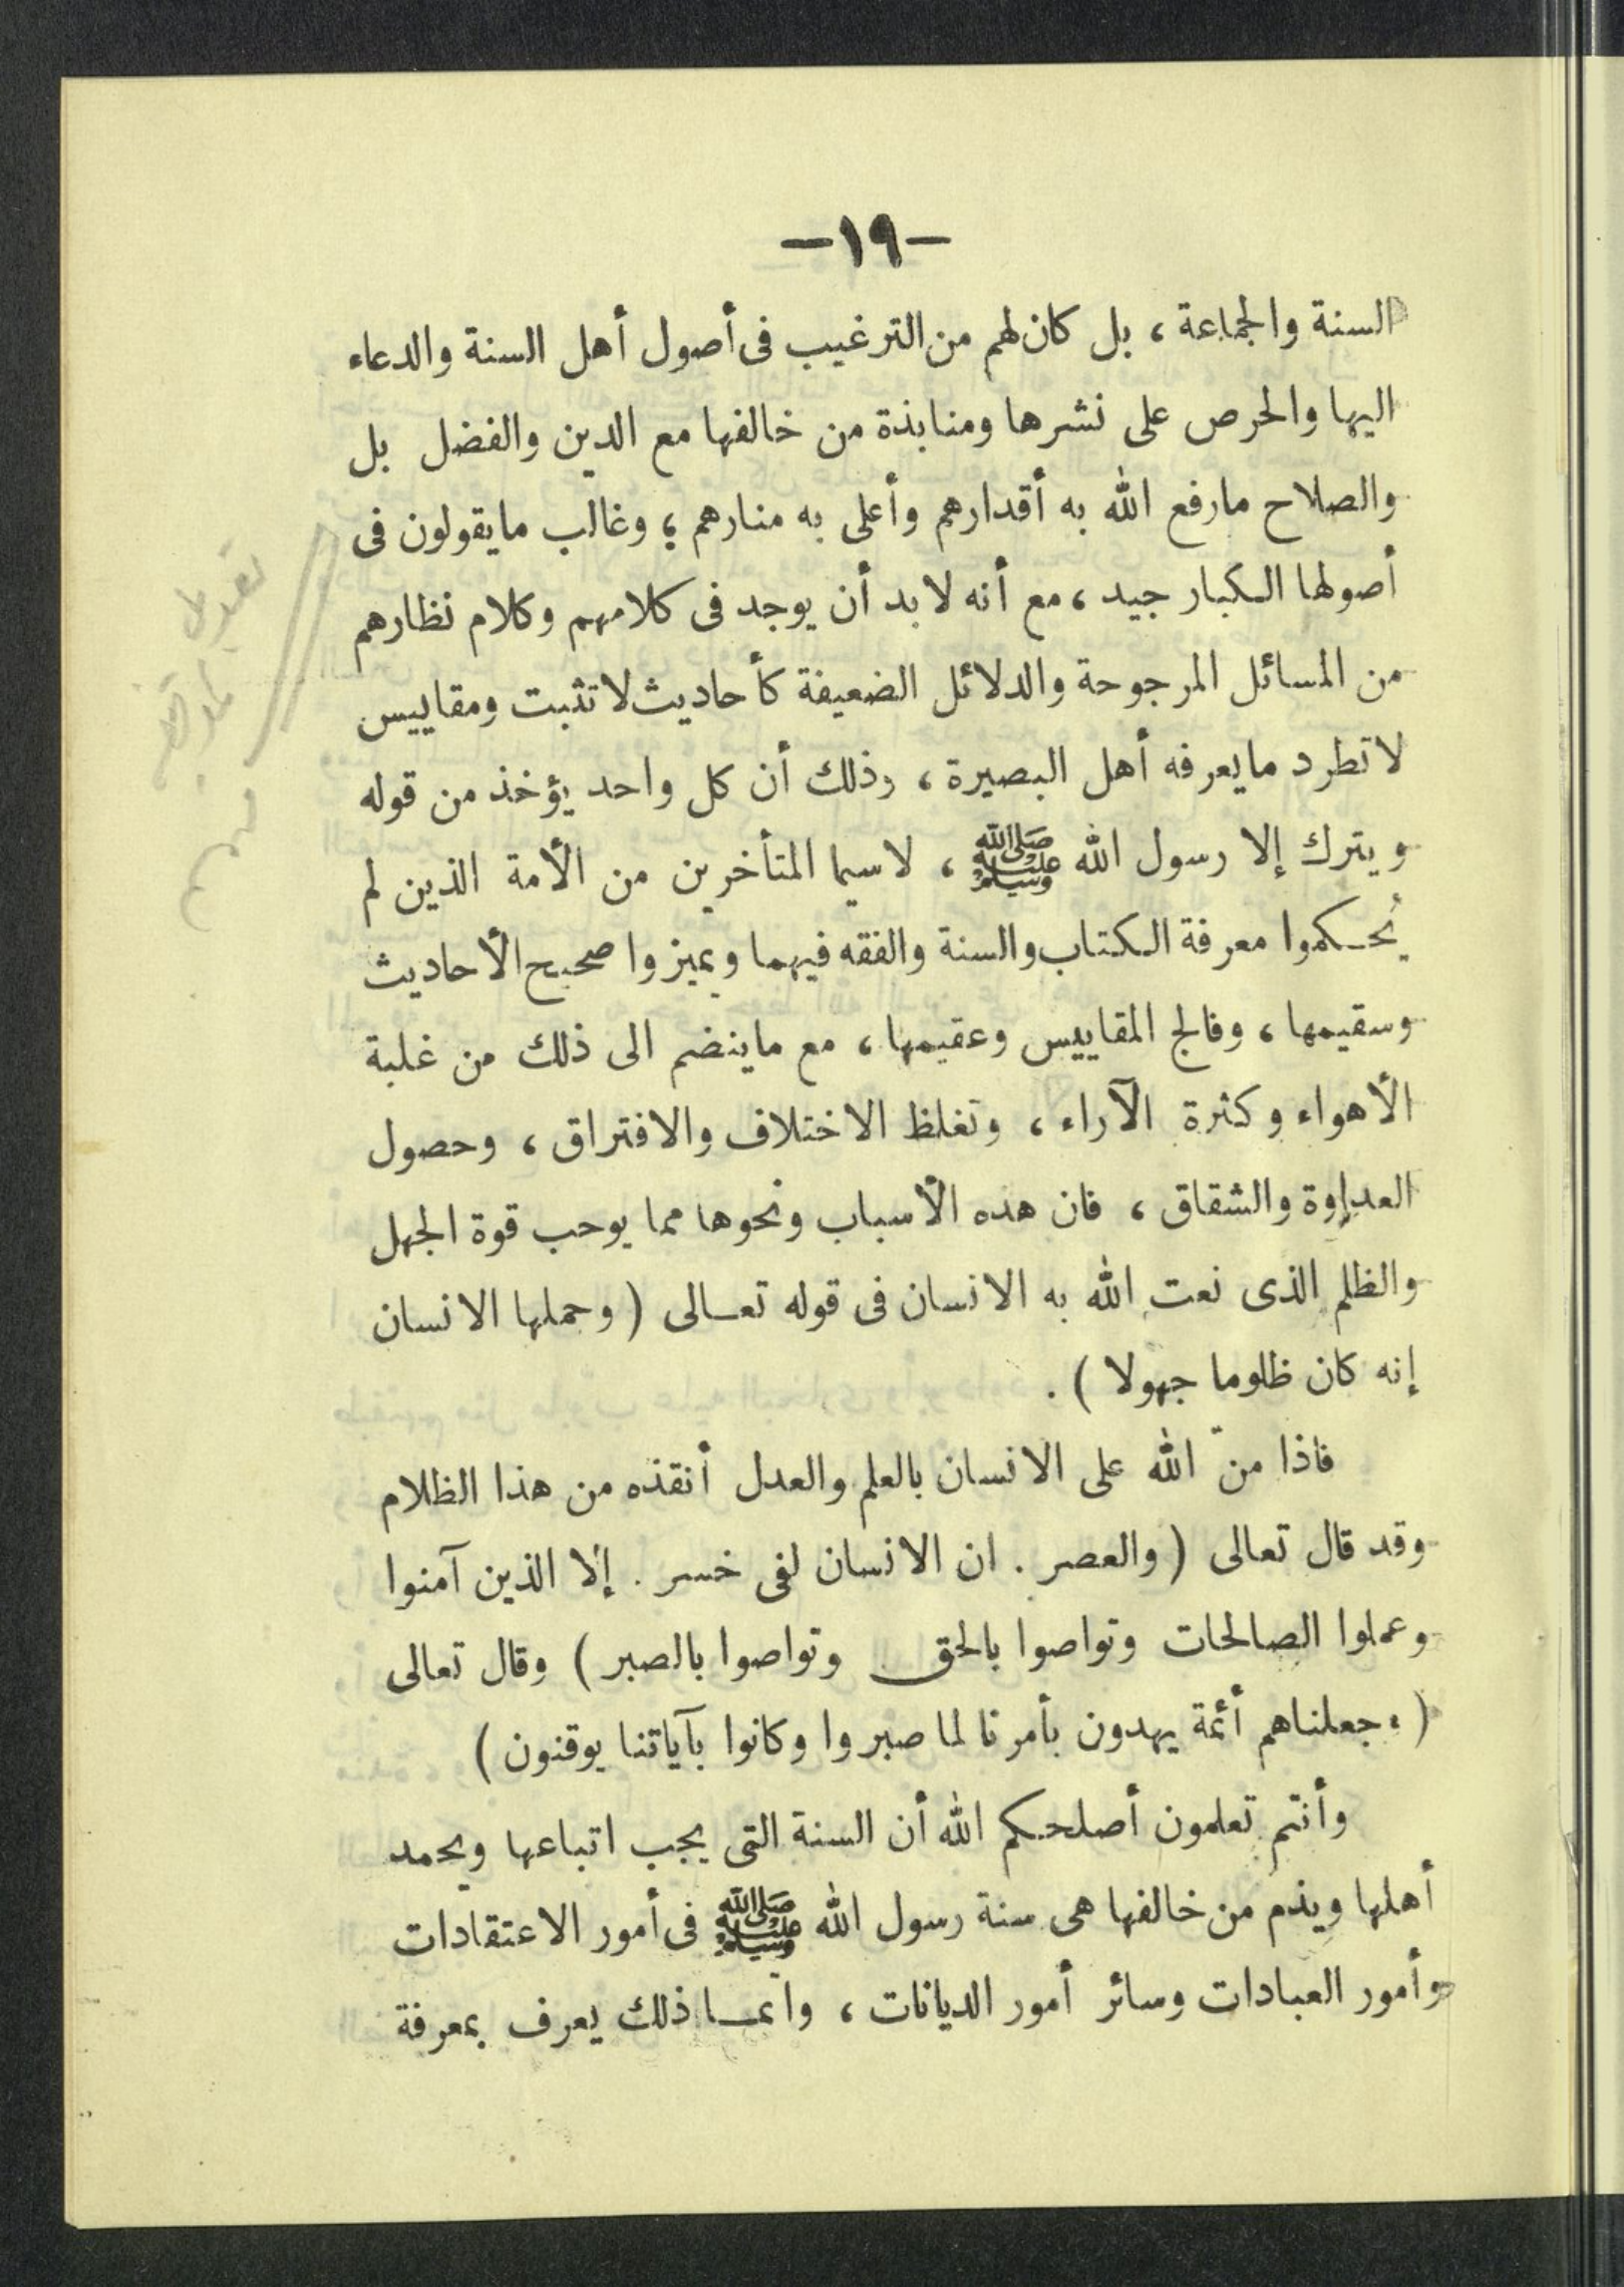 -١٩-
السنة والجماعة ، بل كان لهم من الترغيب فى أصول أهل السنة والدعاء
اليها والحرص على نشرها ومنابذة من خالفها مع الدين والفضل بل
والصلاح مارفع الله به أقدارهم وأعلى به منارهم ؛ وغالب مايقولون فى
أصولها الكبار جيد ، مع أنه لا بد أن يوجد فى كلامهم وكلام نظارهم
من المسائل المرجوحة والدلائل الضعيفة كأحاديث لا تثبت ومقاييس
لا تطرد مايعرفه أهل البصيرة ، وذلك أن كل واحد يؤخذ من قوله
ويترك إلا رسول الله ﷺ ، لا سيما المتأخرين من الأمة الذين لم
يُحكموا معرفة الكتاب والسنة والفقه فيهما ويميزوا صحيح الأحاديث
وسقيمها ، وفالج المقاييس وعقيمها ، مع ماينضم الى ذلك من غلبة
الأهواء وكثرة الآراء ، وتغلظ الاختلاف والافتراق ، وحصول
العداوة والشقاق ، فان هده الأسباب ونحوها مما يوحب قوة الجهل
والظلم الذى نعت الله به الانسان فى قوله تعالى ( وحملها الانسان
إنه كان ظلوما جهولا ) .
فاذا منّ الله على الانسان بالعلم والعدل أنقذه من هذا الظلام
وقد قال تعالى ( والعصر . ان الانسان لفى خسر . إلا الذين آمنوا
وعملوا الصالحات وتواصوا بالحق وتواصوا بالصبر ) وقال تعالى
( وجعلناهم أئمة يهدون بأمرنا لما صبروا وكانوا بآياتنا يوقنون )
وأنتم تعلمون أصلحكم الله أن السنة التى يجب اتباعها ويحمد
أهلها ويذم من خالفها هى سنة رسول الله ﷺ فى أمور الاعتقادات
وأمور العبادات وسائر أمور الديانات ، وانما ذلك يعرف بمعرفة